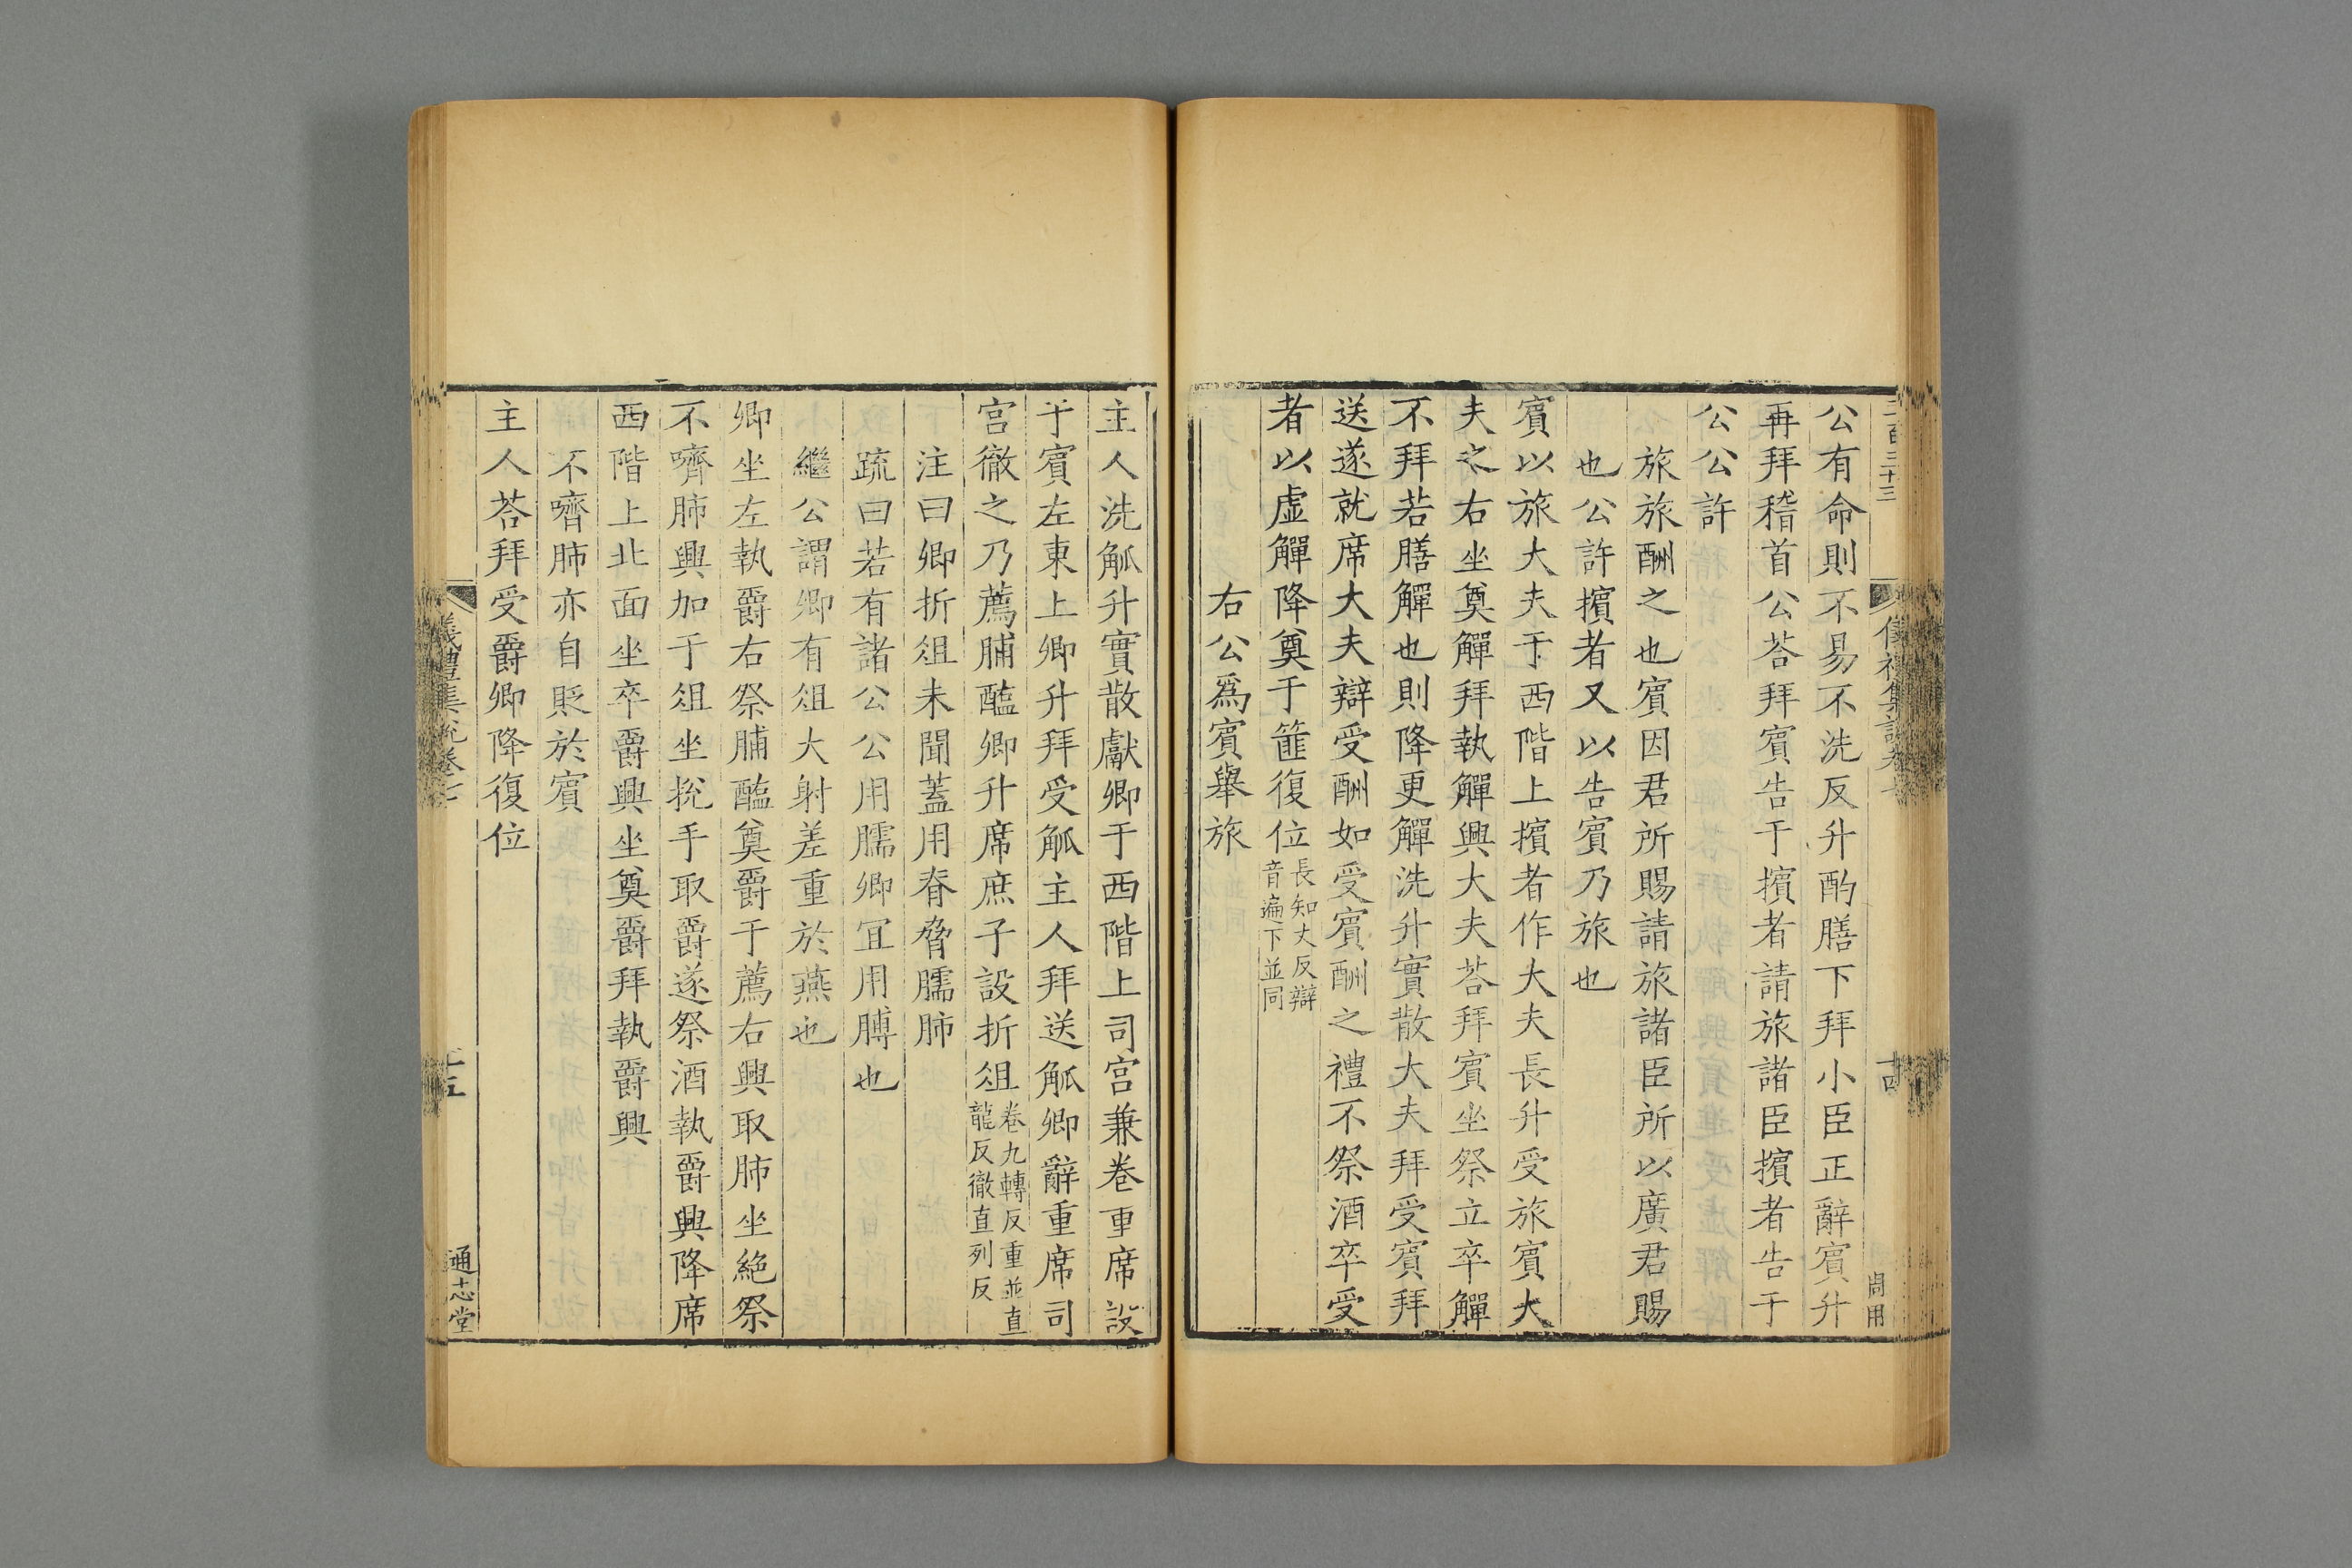 公有命則不易不洗反升酌膳下拜小臣正辭賓升
再拜稽首公荅拜賓告于擯者請旅諸臣擯者告于
公公許
旅旅酬之也賓因君所賜請旅諸臣所以廣君賜
也公許擯者又以告賓乃旅也
賓以旅大夫于西階上擯者作大夫長升受旅賓大
夫之右坐奠觶拜執觶興大夫荅拜賓坐祭立卒觶
不拜若膳觶也則降更觶洗升實散大夫拜受賓拜
送遂就席大夫辯受酬如受賓酬之禮不祭酒卒受
者以虛觶降奠于篚復位長知大反辯
音遍下並同
右公爲賓舉旅
主人洗觚升實散獻卿于西階上司宮兼卷重席設
于賓左東上卿升拜受觚主人拜送觚卿辭重席司
宮徹之乃薦脯醢卿升席庶子設折俎卷九轉反重並直
龍反徹直列反
注曰卿折俎未聞蓋用脊脅臑肺
疏曰若有諸公公用臑卿宜用膊也
繼公謂卿有俎大射差重於燕也
卿坐左執爵右祭脯醢奠爵于薦右興取肺坐絕祭
不嚌肺興加于俎坐挩手取爵遂祭酒執爵興降席
西階上北面坐卒爵興坐奠爵拜執爵興
不嚌肺亦自貶於賓
主人荅拜受爵卿降復位
儀禮集說卷七
十五
通志堂